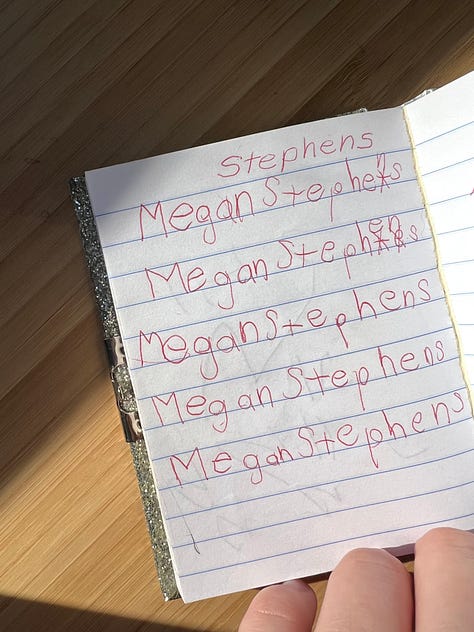 Stephens
Megan Stephens
Megan Stephens
Megan Stephens
Megan Stephens
Megan Stephens